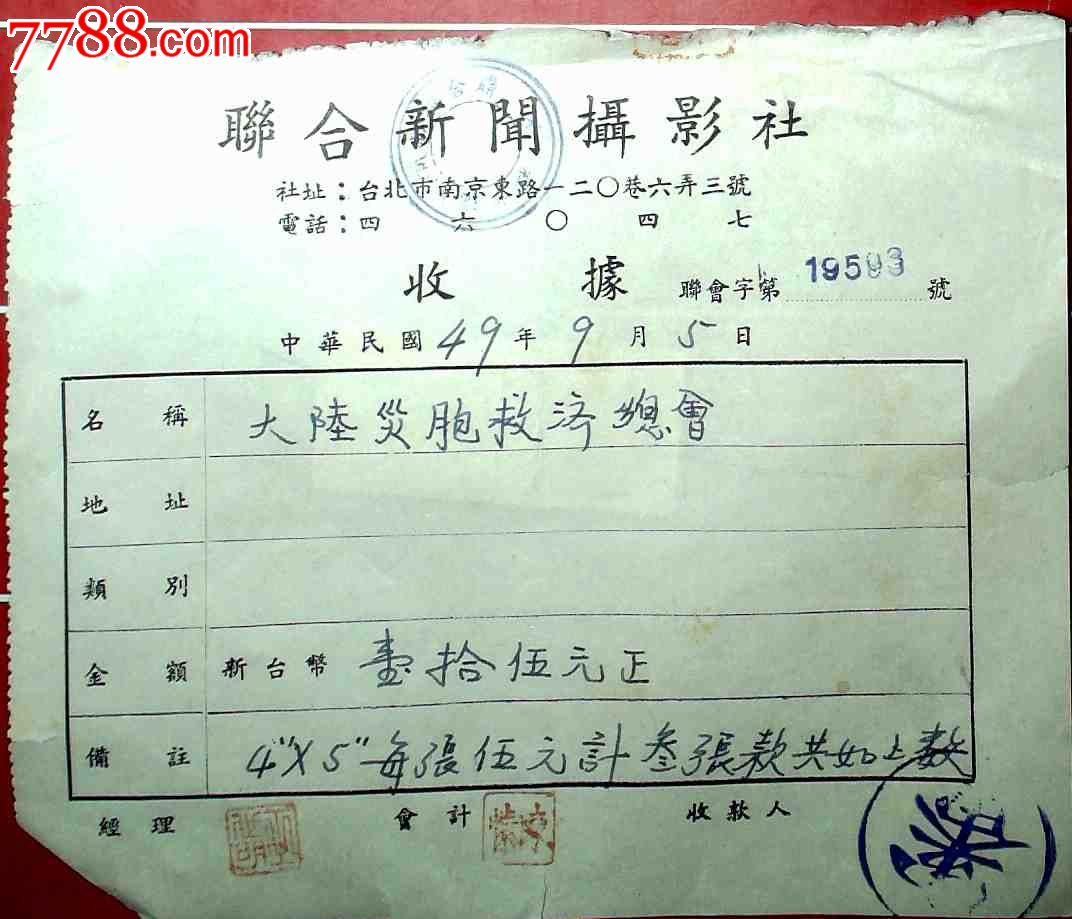 7788.com
聯合新聞攝影社
社址：台北市南京東路一二〇巷六弄三號
電話：四六〇四七
收據 聯會字第19593號
中華民國49年9月5日
名稱 大陸災胞救濟總會
地址
類別
金額 新台幣 壹拾伍元正
備註 4"X5"每張伍元計叁張款共如上數
經理 會計 收款人